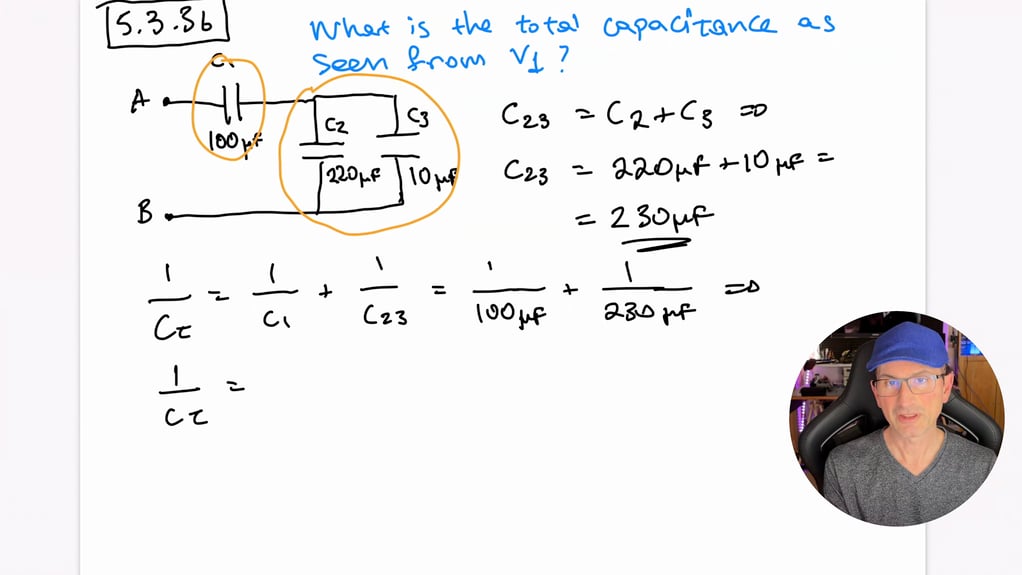 5.3.3b
What is the total capacitance as
seen from V1?
C1
A
100μF
C2
C3
220μF
10μF
B
C23 = C2 + C3 =>
C23 = 220μF + 10μF =
= 230μF
1/Cτ = 1/C1 + 1/C23 = 1/100μF + 1/230μF =>
1/Cτ =